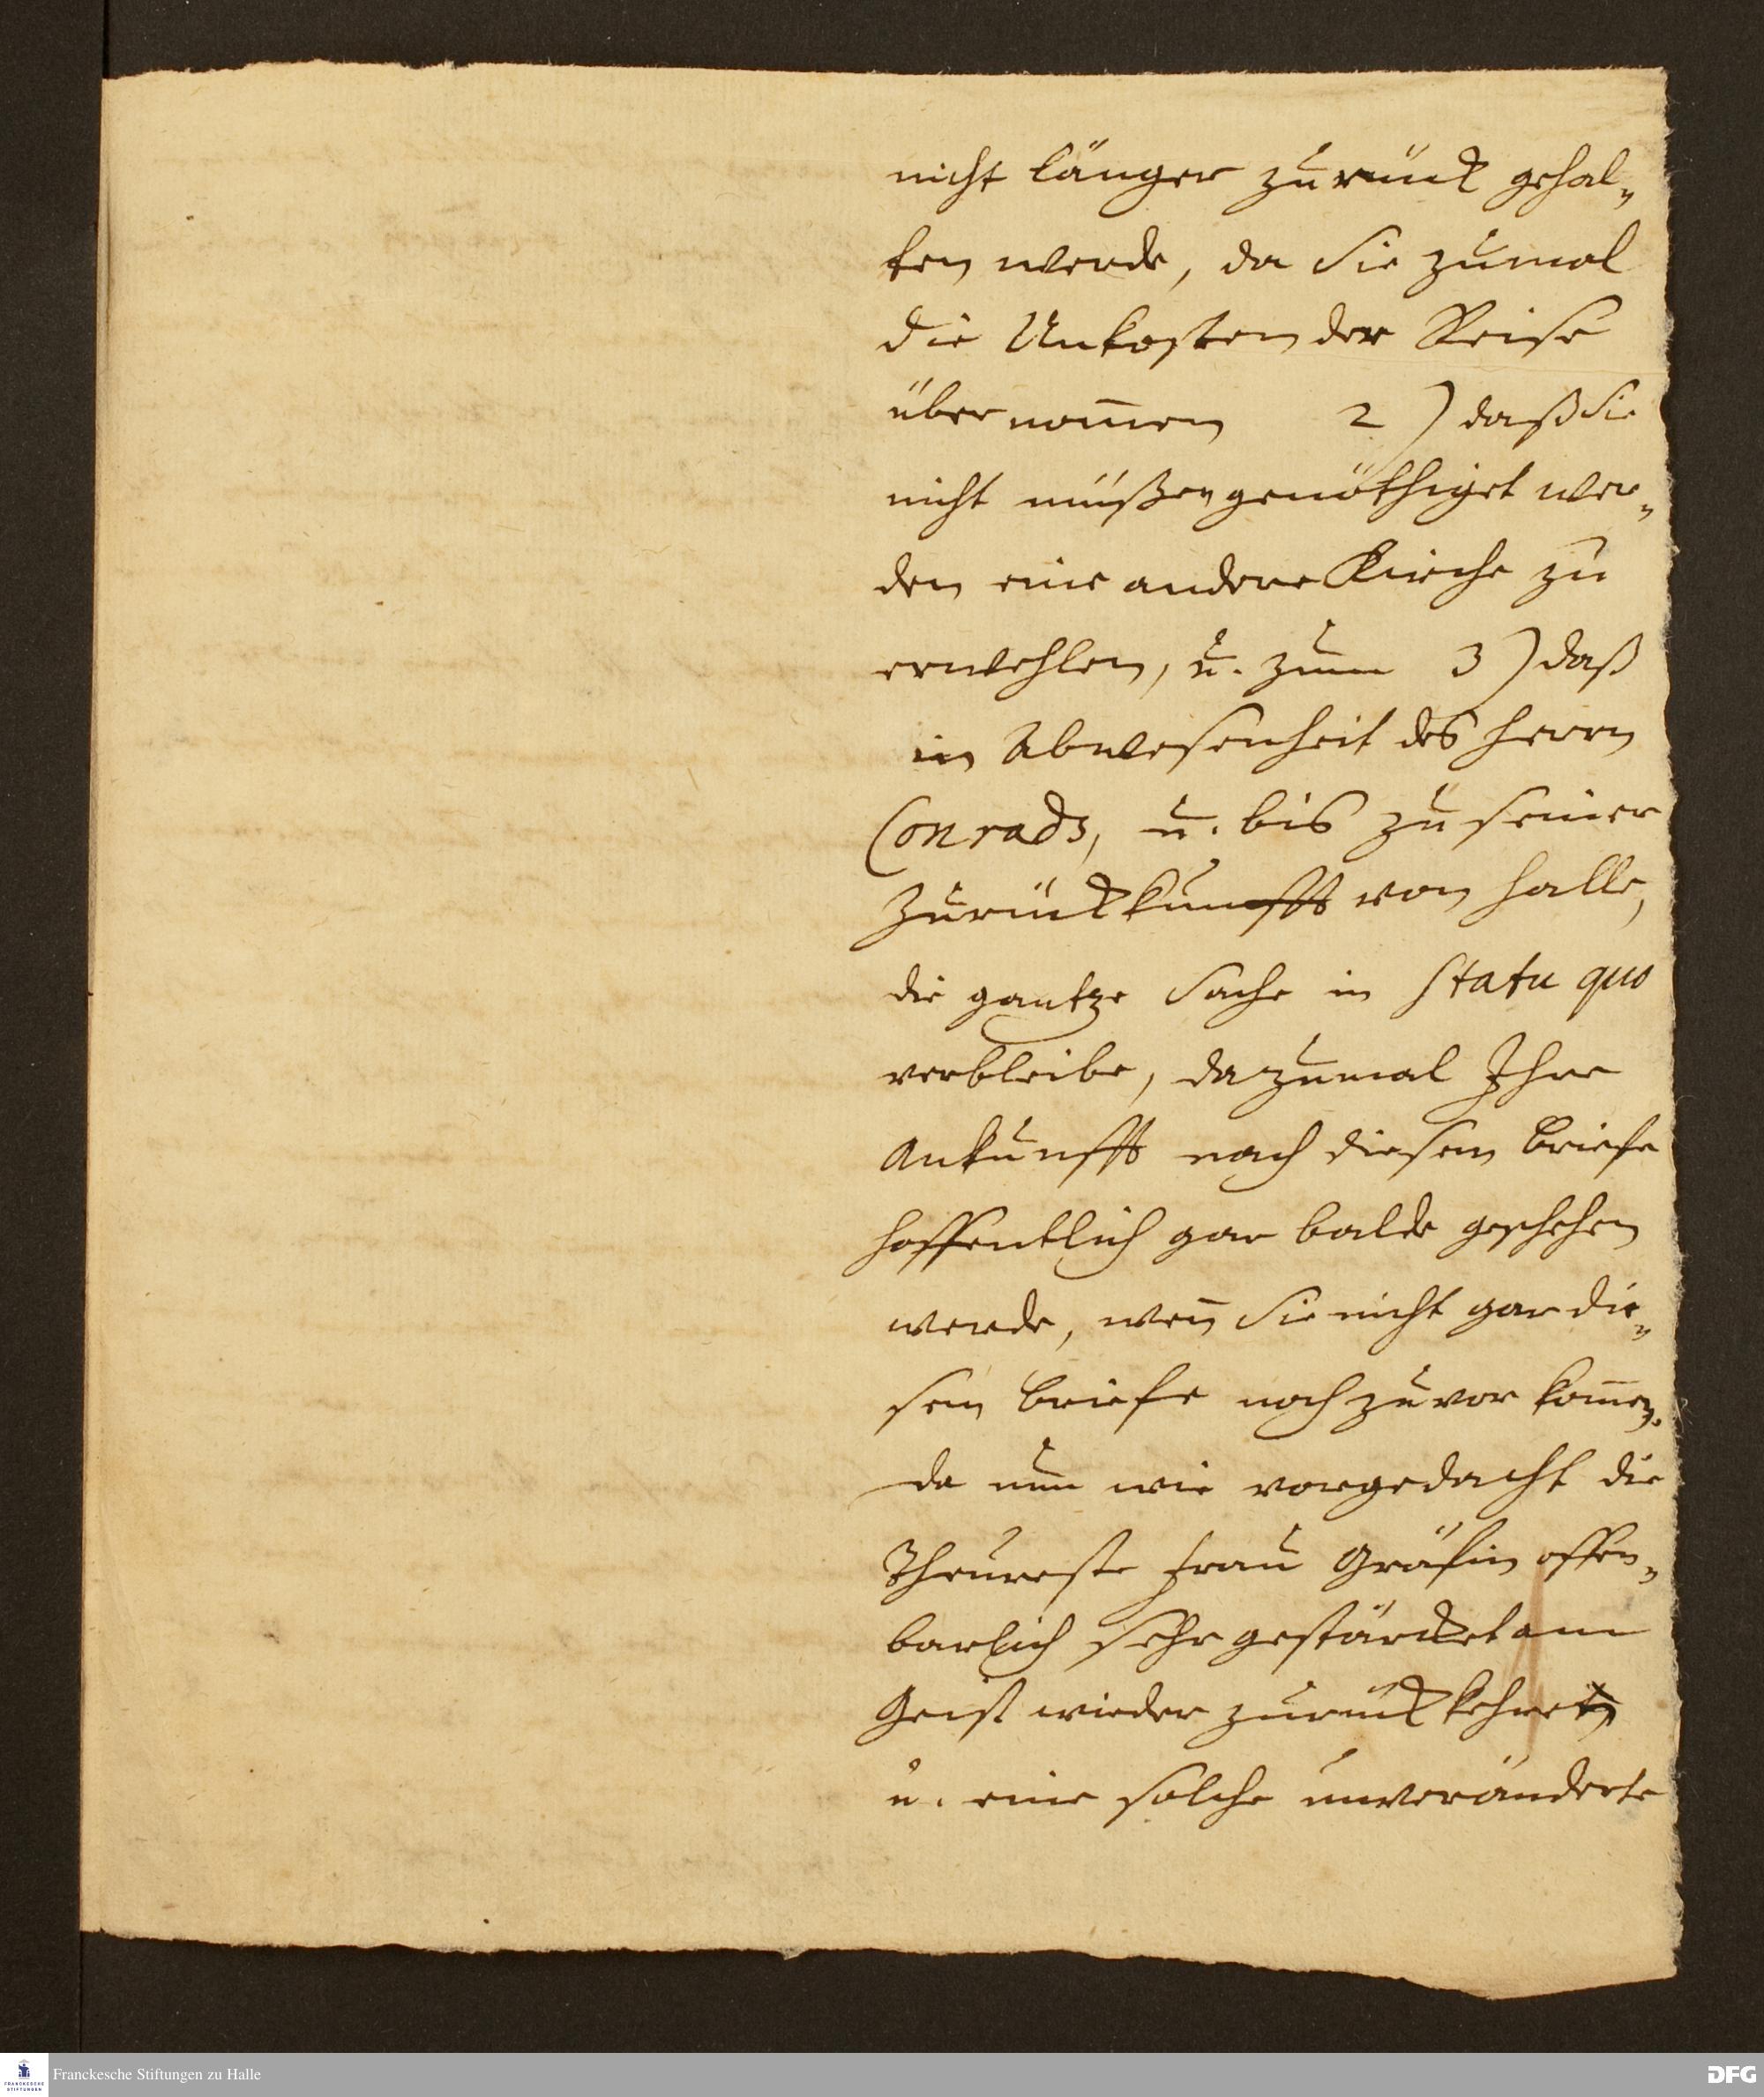 nicht länger zurück gehal„
ten werde, da Sie zumal
die Unkosten der Reise
übernom̅en 2) daß Sie
nicht müßen genöthiget wer„
den eine andere Kirche zu
erwehlen, u. zum 3) daß
in Abwesenheit des Herrn
Conrads, u. bis zu seiner
Zurückkunfft von Halle,
die gantze Sache in Statu quo
verbleibe, dazumal Ihre
Ankunfft nach diesem Briefe
hoffentlich gar balde geschehen
werde, wen̅ Sie nicht gar die„
sem Briefe noch zuvor kom̅en.
da nun wie vorgedacht die
Theureste Frau Gräfin offen„
barlich sehr gestärcket am
Geist wieder zurück kehret
u. eine solche unveränderte
Franckesche Stiftungen zu Halle
DFG
FRANCKESCHE
STIFTUNGEN